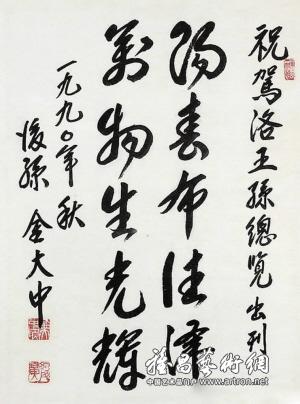 祝駕洛王孫總覽出刊
陽春布德澤
萬物生光輝
一九九〇年秋
後孫 金大中
雅昌藝術網
中国艺术品门户 www.artron.net